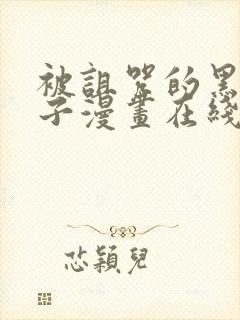 被詛咒的黑
子漫畫在綫
芯穎兒